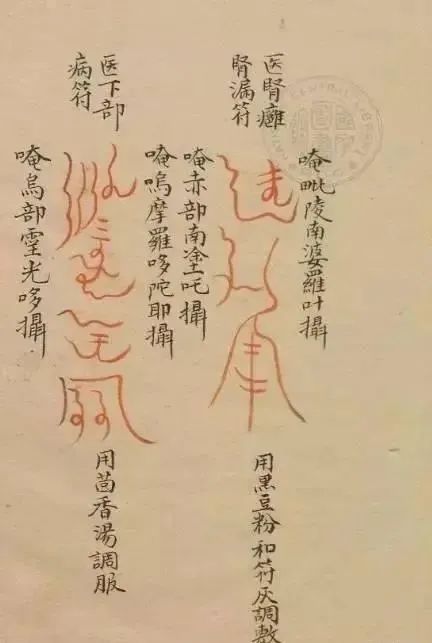 医腎癰
腎漏符
唵毗陵南婆羅叶攝
唵赤部南塗吒攝
用黑豆粉和符灰調敷
医下部
病符
唵嗚摩羅哆陀耶攝
唵嗚部霊光哆攝
用茴香湯調服